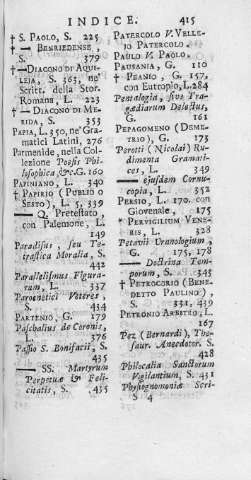 INDICE. 415
† S. PAOLO, S. 225
† —— BENRIEDENSE,
S. 379
—— DIACONO DI AQUI-
LEJA, S. 363, ne'
Scritt. della Stor.
Romana, L. 223
—— DIACONO DI ME-
RIDA, S. 353
PAPIA, L. 350, ne' Gra-
matici Latini, 276
Parmenide, nella Col-
lezione Poesis Phi-
losophica, &c. G. 160
PAPINIANO, L. 340
† PAPIRIO (PUBLIO O
SESTO), L. 5, 339
—— Q. Pretestato,
con Palemone, L.
149
Paradisus, seu Te-
trastica Moralia, S.
432
Parallelismus Figura-
rum, L. 337
Paroenetici Veteres,
S. 434
PARTENIO, G. 179
Paschalius de Coronis,
L. 376
Passio S. Bonifacii, S.
435
—— SS. Martyrum
Perpetuæ & Feli-
citatis, S. 435
PATERCOLO V. VELLE-
JO PATERCOLO.
PAULO V. PAOLO.
PAUSANIA, G. 110
† PEANIO, G. 157,
con Eutropio, L. 284
Pentalogia, sive Tra-
gœdiarum Delectus,
G. 161
PEPAGOMENO (DEME-
TRIO), G. 175
Perotti (Nicolai) Ru-
dimenta Gramati-
ces, L. 349
—— Ejusdem Cornu-
copia, L. 352
PERSIO, L. 170. con
Giovenale, 175
* PERVIGILIUM VENE-
RIS, L. 328
Petavii Uranologium,
G. 175, 178
—— Doctrina Tem-
porum, S. 345
† PETROCORIO (BENE-
DETTO PAULINO),
S. 331, 439
PETRONIO ARBITRO, L.
167
Pez (Bernardi), The-
saur. Anecdotor. S.
428
Philocalia Sanctorum
Vigilantium, S. 431
Physiognomoniæ Scri-
S 4